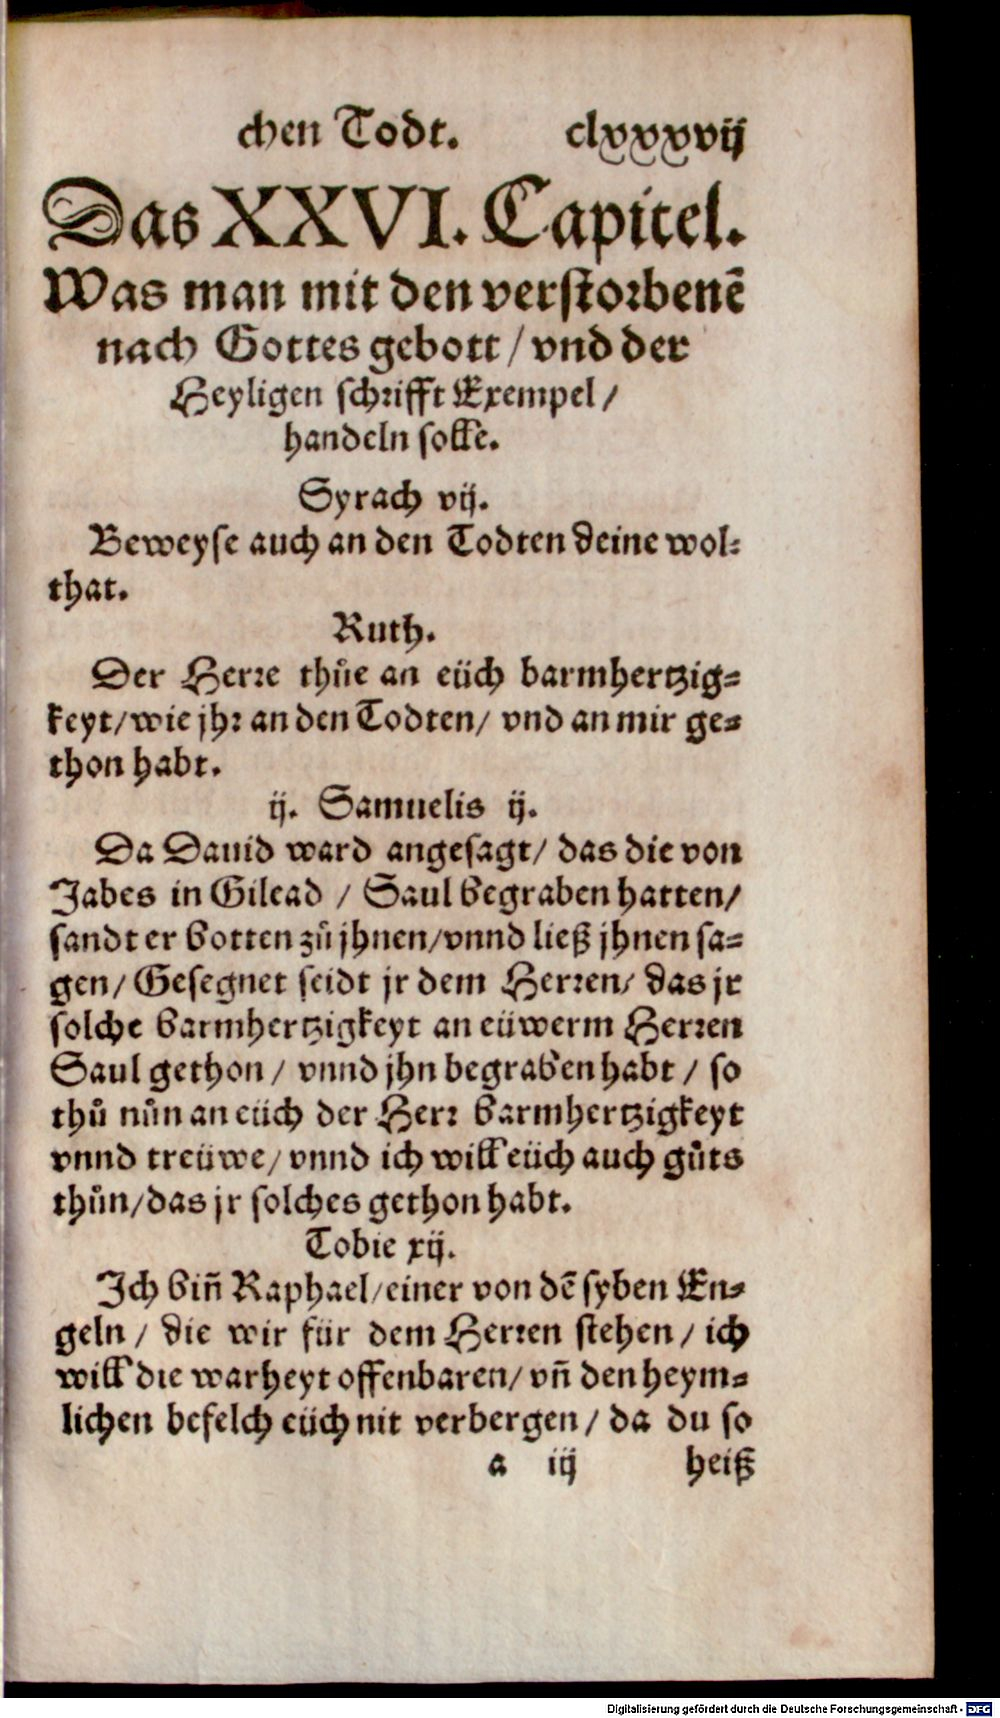 chen Todt. clxxxvij
Das XXVI. Capitel.
Was man mit den verstorbenē
nach Gottes gebott / vnd der
Heyligen schrifft Exempel /
handeln solle.
Syrach vij.
Beweyse auch an den Todten deine wol⸗
that.
Ruth.
Der Herre thuͤe an eüch barmhertzig⸗
keyt / wie jhr an den Todten / vnd an mir ge⸗
thon habt.
ij. Samuelis ij.
Da Dauid ward angesagt / das die von
Jabes in Gilead / Saul begraben hatten /
sandt er botten zuͦ jhnen / vnnd ließ jhnen sa⸗
gen / Gesegnet seidt jr dem Herren / das jr
solche barmhertzigkeyt an eüwerm Herren
Saul gethon / vnnd jhn begraben habt / so
thuͦ nuͦn an eüch der Herr barmhertzigkeyt
vnnd treüwe / vnnd ich will eüch auch guͦts
thuͦn / das jr solches gethon habt.
Tobie xij.
Ich biñ Raphael / einer von dē syben En⸗
geln / die wir für dem Herren stehen / ich
will die warheyt offenbaren / vñ den heym⸗
lichen befelch eüch nit verbergen / da du so
a iij heiß
Digitalisierung gefördert durch die Deutsche Forschungsgemeinschaft - DFG